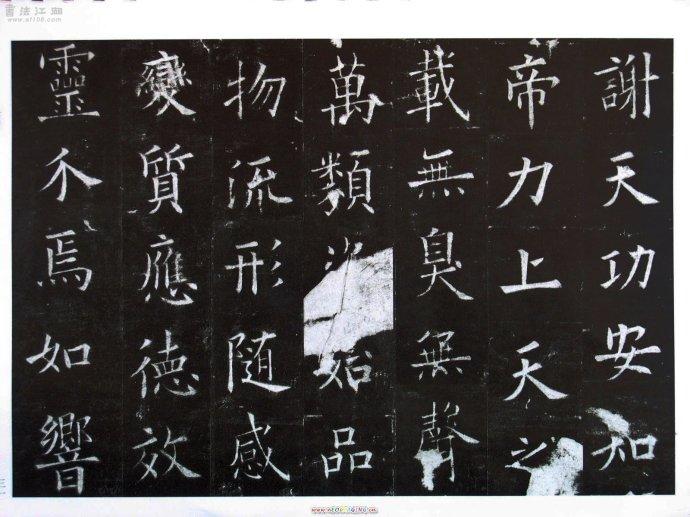 謝天功安知
帝力上天之
載無臭無聲
萬類始品
物流形随感
變質應德效
靈介焉如響
書法江湖
www.sf108.com